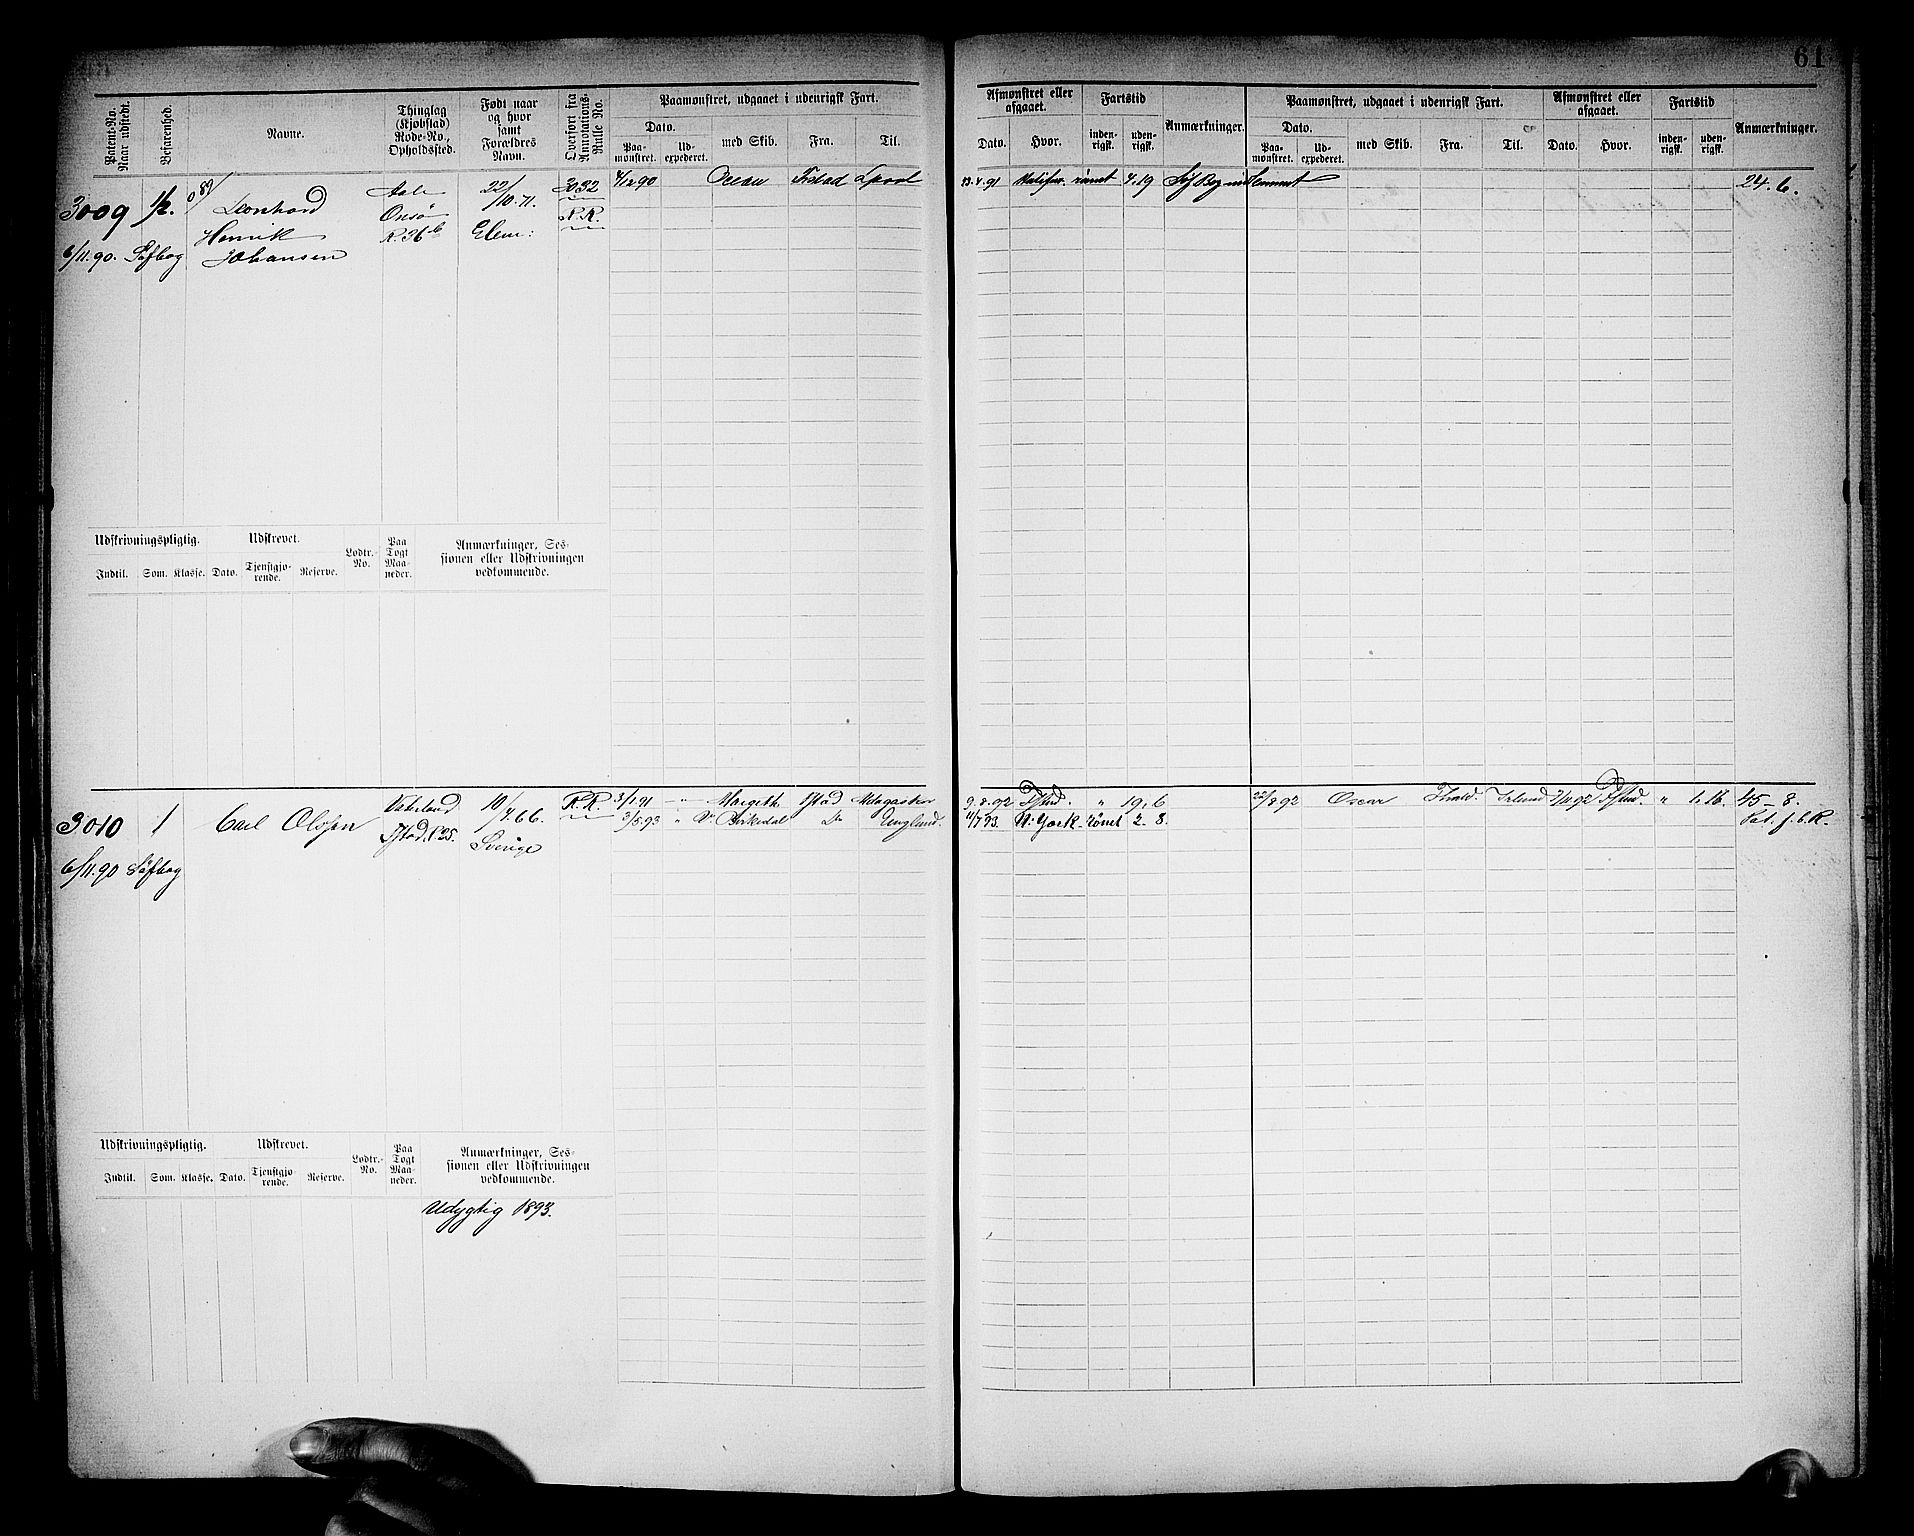 61
Patent-No. Naar udstedt.
Befarenhed.
Navne.
Thinglag (Kjøbstad) Rode-No., Opholdssted.
Født naar og hvor samt Forældres Navn.
Overført fra Annotations-Rulle No.
Paamønstret, udgaaet i udenrigsk Fart.
Dato.
Paamønstret.
Udexpederet.
med Skib.
Fra.
Til.
Afmønstret eller afgaaet.
Dato.
Hvor.
Fartstid
indenrigsk.
udenrigsk.
Anmærkninger.
Paamønstret, udgaaet i udenrigsk Fart.
Dato.
Paamønstret.
Udexpederet.
med Skib.
Fra.
Til.
Afmønstret eller afgaaet.
Dato.
Hvor.
Fartstid
indenrigsk.
udenrigsk.
Anmærkninger.
3009 1/2. Leonhard
Henrik
Johansen
6/11.90. Søfbog
Aale
Onsø
R. 36 b
22/10.71.
Elem:
3032
R.R.
4/12 90 Ocean Frstad Lpool
23.4.91 Halifax rømt 4.19
24. 6.
Udskrivningspligtig.
Udskrevet.
Lodtr.-No.
Paa Togt Maaneder.
Anmærkninger, Sessionen eller Udskrivningen vedkommende.
Indtil.
Rom.
Klasse.
Dato.
Tjenstgjørende.
Reserve.
3010 1 Carl Olssen
6/11.90 Søfbog
Vaterland
Fstad. R 25.
10/4.66.
Sverige
R.R.
3/1.91 Margeth Fstad
3/5.93 Birkedal Do England.
9.8.92 Fstad. " 19.6
4/7 93. N. York rømt 2. 8.
22/8 92 Oscar Irland 7/10 92 Fstad. " 1.16.
45 – 8.
Pat. f. b. R.
Udskrivningspligtig.
Udskrevet.
Lodtr.-No.
Paa Togt Maaneder.
Anmærkninger, Sessionen eller Udskrivningen vedkommende.
Indtil.
Rom.
Klasse.
Dato.
Tjenstgjørende.
Reserve.
Udygtig 1893.